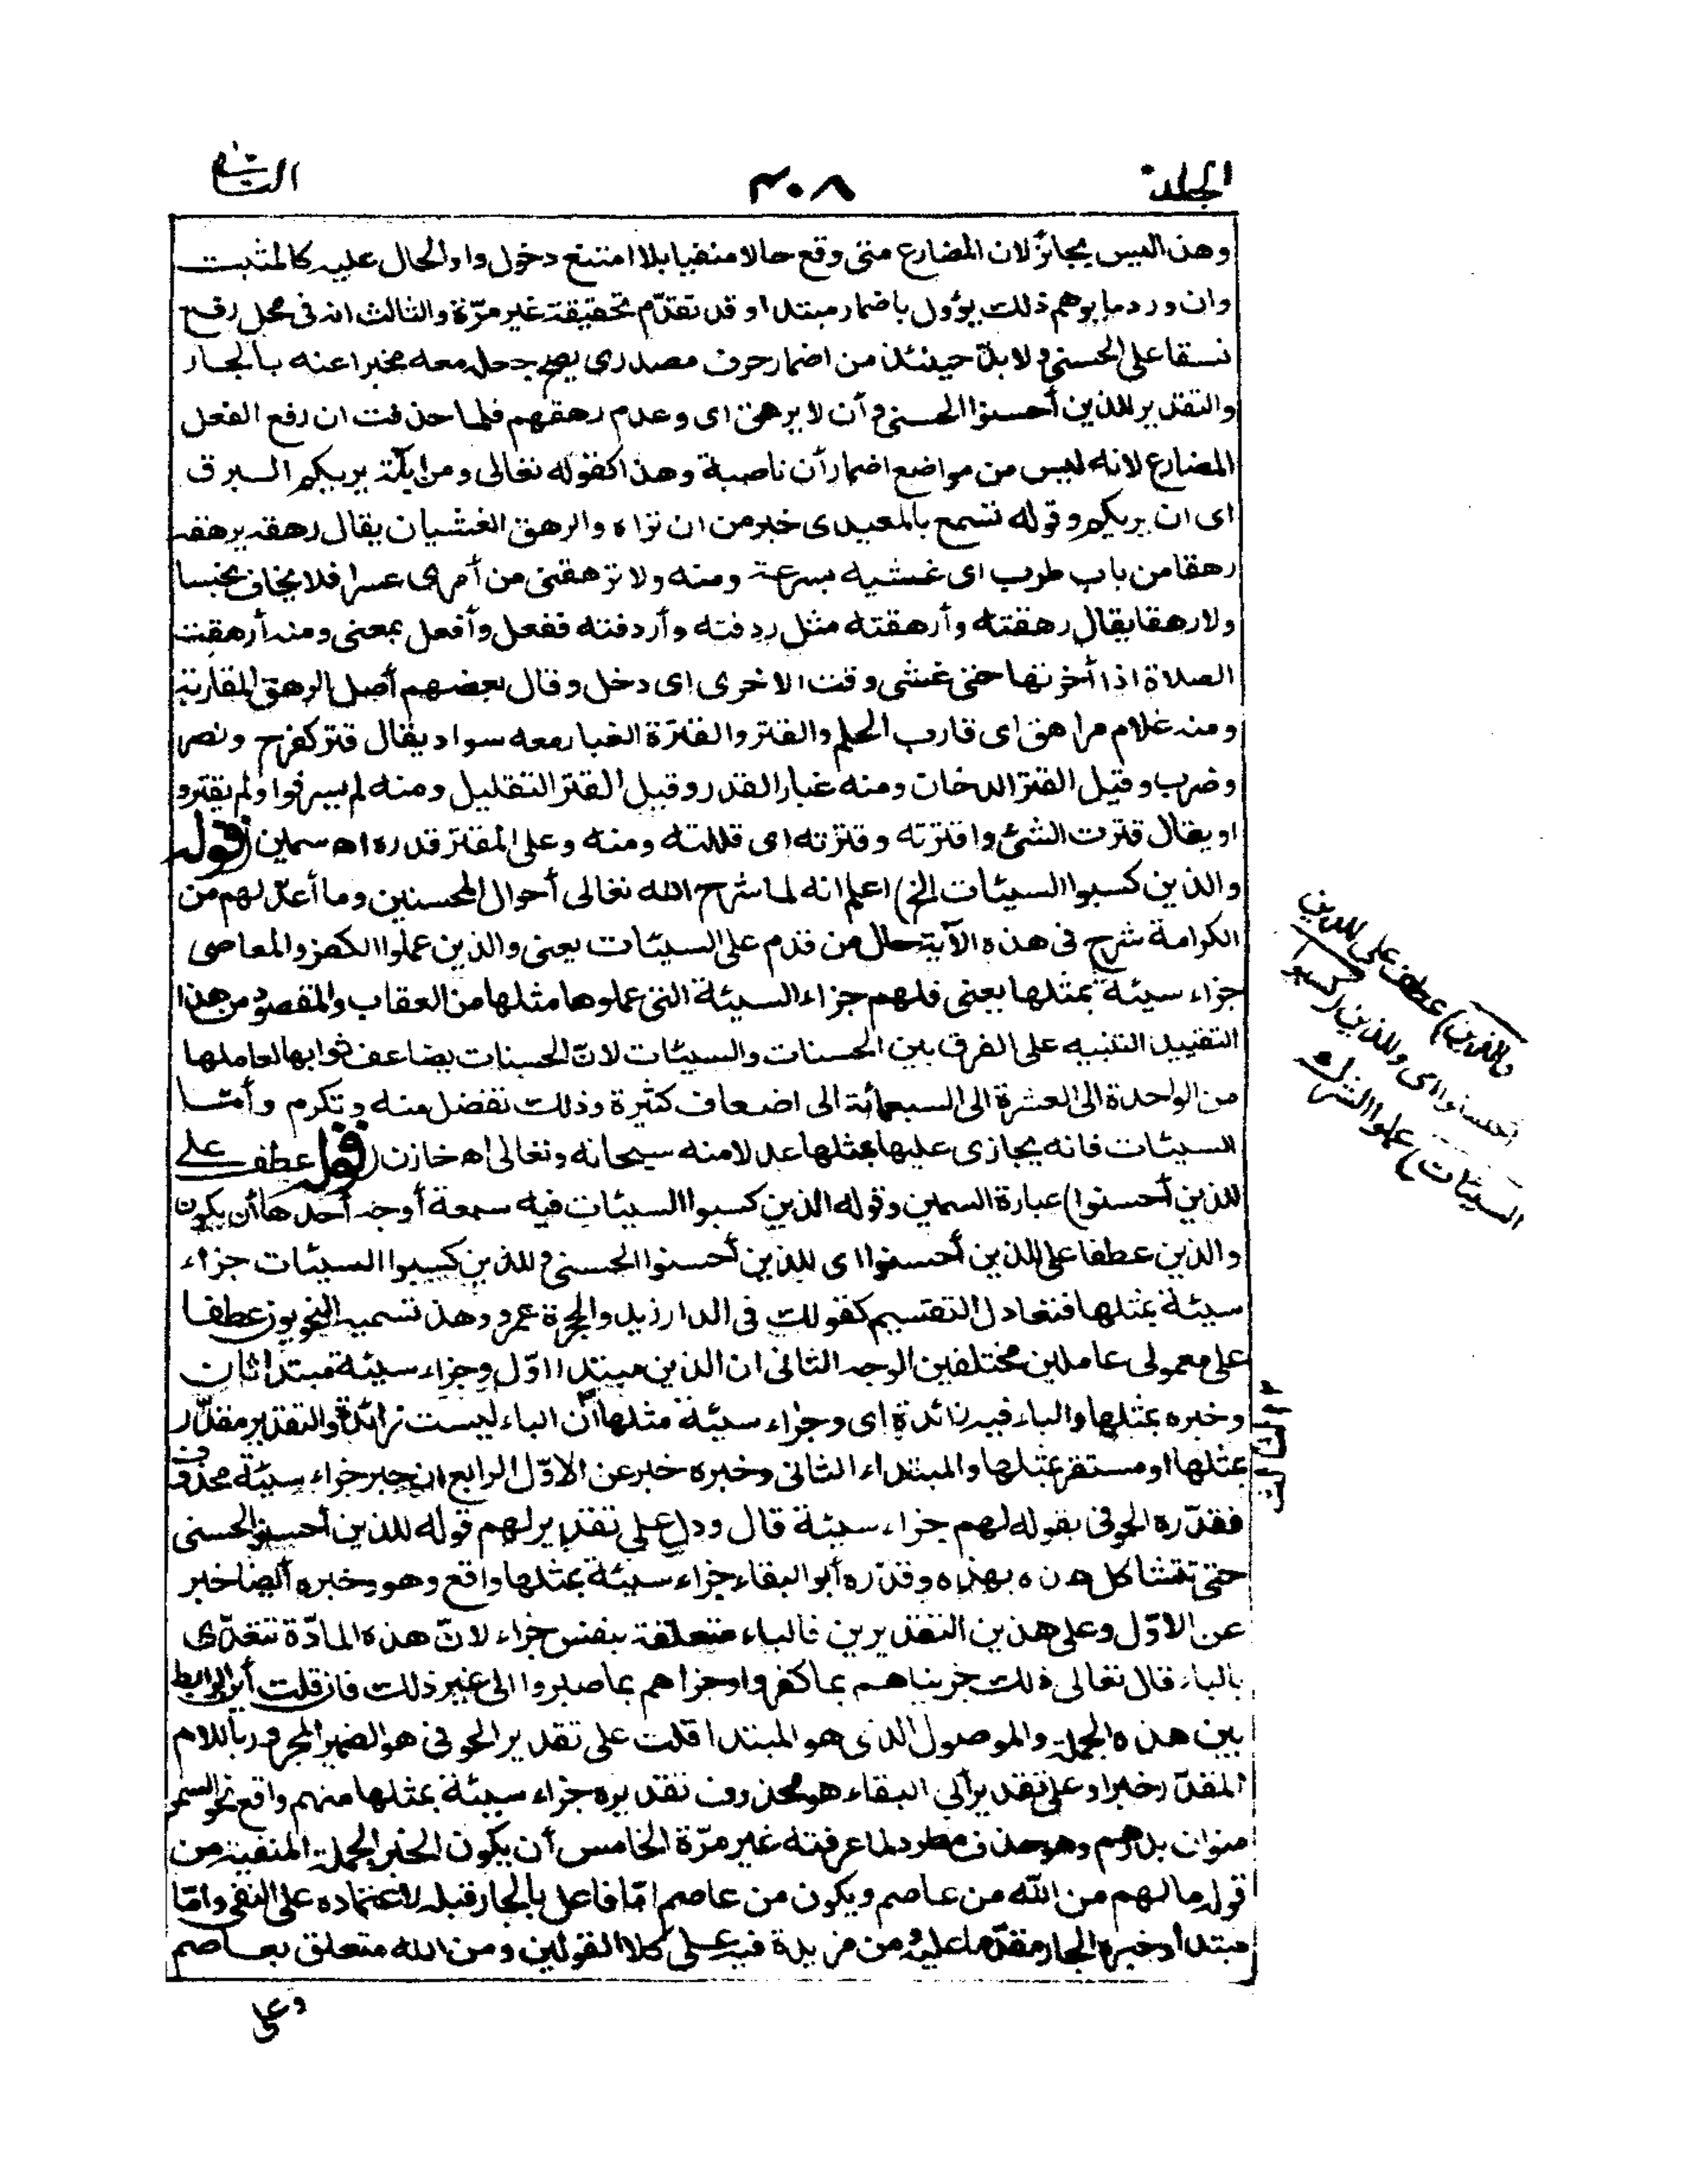 الجلد
٣٠٨
الثانى
وهذا ليس بجائز لان المضارع متى وقع حالا منفيا بلا امتنع دخول واو الحال عليه كالمثبت
وان ورد ما يوهم ذلك يؤول باضمار مبتدا وقد تقدّم تحقيقه غير مرّة والثالث انه فى محل رفع
نسقا على الحسنى ولا بدّ حينئذ من اضمار حرف مصدرى يصح جعله معه مخبرا عنه بالجار
والتقدير للذين أحسنوا الحسنى وأن لا يرهق اى وعدم رهقهم فلما حذفت ان رفع الفعل
المضارع لانه ليس من مواضع اضمار أن ناصبة وهذا كقوله تعالى ومن آياته يريكم البرق
اى ان يريكم وقوله تسمع بالمعيدى خير من ان تراه والرهق الغشيان يقال رهقه يرهقه
رهقا من باب طرب اى غشيه بسرعة ومنه ولا ترهقنى من أمرى عسرا فلا يخاف بخسا
ولا رهقا يقال رهقته وأرهقته مثل ردفته وأردفته ففعل وأفعل بمعنى ومنه أرهقت
الصلاة اذا أخرتها حتى غشى وقت الاخرى اى دخل وقال بعضهم أصل الرهق المقاربة
ومنه غلام مراهق اى قارب الحلم والقتر والقترة الغبار معه سواد يقال قتر كفرح ونصر
وضرب وقيل القتر الدخان ومنه غبار القدر وقيل القتر التقليل ومنه لم يسرفوا ولم يقترو
او يقال قترت الشئ واقترته وقترته اى قللته ومنه وعلى المقتر قدره اه سمين (قوله
والذين كسبوا السيئات الخ) اعلم انه لما شرح الله تعالى أحوال المحسنين وما أعدّ لهم من
الكرامة شرح فى هذه الآية حال من قدم على السيئات يعنى والذين عملوا الكفر والمعاصى
جزاء سيئة بمثلها يعنى فلهم جزاء السيئة التى عملوها مثلها من العقاب والمقصود من هذا
التقييد التنبيه على الفرق بين الحسنات والسيئات لانّ الحسنات يضاعف ثوابها لعاملها
من الواحدة الى العشرة الى السبعمائة الى اضعاف كثيرة وذلك تفضل منه وتكرم وأمّا
السيئات فانه يجازى عليها بمثلها عدلا منه سبحانه وتعالى اه خازن (قوله عطف على
للذين أحسنوا) عبارة السمين وقوله الذين كسبوا السيئات فيه سبعة أوجه أحدها أن يكون
والذين عطفا على للذين أحسنوا اى للذين أحسنوا الحسنى وللذين كسبوا السيئات جزاء
سيئة بمثلها فتعادل التقسيم كقولك فى الدار زيد والحجرة عمرو وهذا تسميه النحويون عطفا
على معمولى عاملين مختلفين الوجه الثانى ان الذين مبتدا اوّل وجزاء سيئة مبتدا ثان
وخبره بمثلها والباء فيه زائدة اى وجزاء سيئة مثلها أن الباء ليست زائدة والتقدير مقدّر
بمثلها او مستقر بمثلها والمبتداء الثانى وخبره خبر عن الاوّل الرابع ان خبر جزاء سيئة محذوف
فقدّره الحوفى بقوله لهم جزاء سيئة قال ودل على تقدير لهم قوله للذين أحسنوا الحسنى
حتى تتشاكل هذه بهذه وقدّره أبو البقاء جزاء سيئة بمثلها واقع وهو وخبره أيضا خبر
عن الاوّل وعلى هذين التقديرين فالباء متعلقة بنفس جزاء لانّ هذه المادّة تتعدّى
بالباء قال تعالى ذلك جزيناهم بما كفروا وجزاهم بما صبروا الى غير ذلك فان قلت أين الرابط
بين هذه الجملة والموصول الذى هو المبتدا قلت على تقدير الحوفى هو الضمير المجرور باللام
المقدّر خبرا وعلى تقدير أبى البقاء هو محذوف تقديره جزاء سيئة بمثلها منهم واقع نحو السمن
منوان بدرهم وهو حذف مطرد لما عرفته غير مرّة الخامس أن يكون الخبر الجملة المنفية من
قوله ما لهم من الله من عاصم ويكون من عاصم امّا فاعل بالجار قبله لاعتماده على النفى وامّا
مبتدأ وخبره الجار مقدّما عليه ومن مزيدة فيه على كلا القولين ومن الله متعلق بعاصم
وعلى
والذين) عطف على للذين
أحسنوا اى وللذين (كسبوا
السيئات) عملوا الشرك